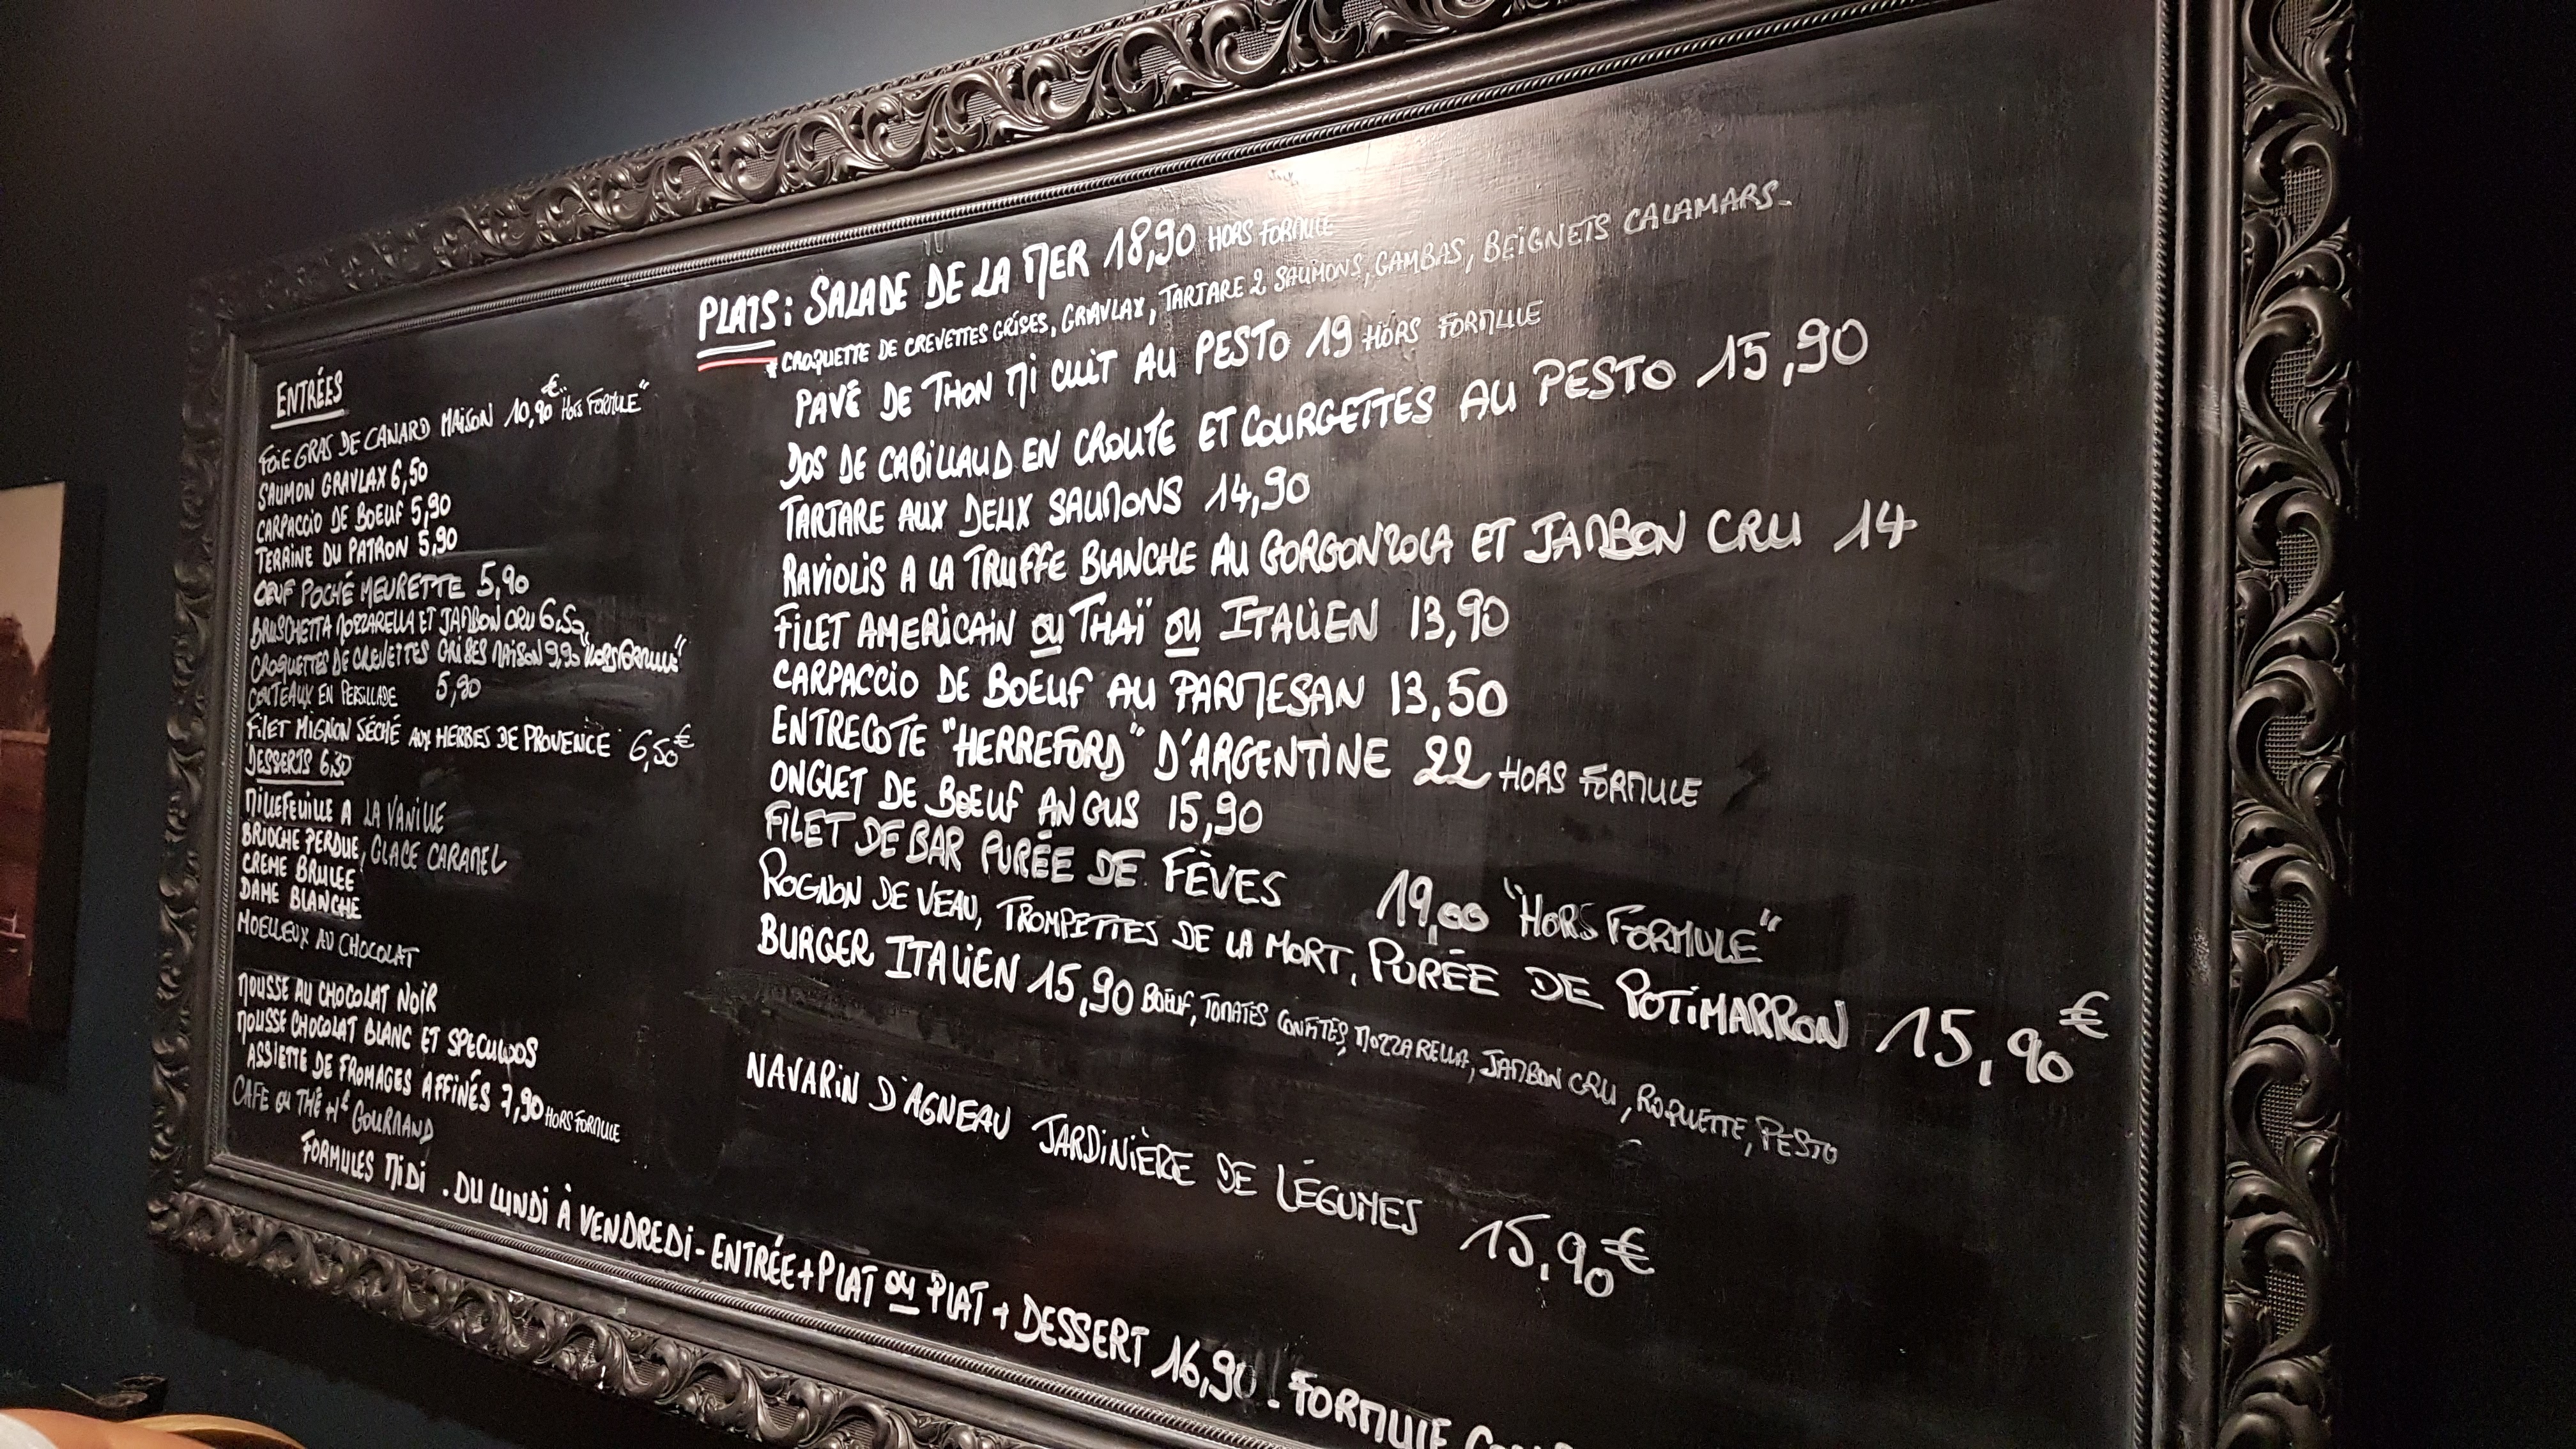 ENTRÉES
FOIE GRAS DE CANARD MAISON 10,90€ "HORS FORMULE"
SAUMON GRAVLAX 6,50
CARPACCIO DE BOEUF 5,90
TERRINE DU PATRON 5,90
OEUF POCHÉ MEURETTE 5,90
BRUSCHETTA MOZZARELLA ET JAMBON CRU 6,50
CROQUETTES DE CREVETTES GRISES MAISON 9,90 "HORS FORMULE"
COUTEAUX EN PERSILLADE 5,90
FILET MIGNON SÉCHÉ AUX HERBES DE PROVENCE 6,50€
DESSERTS 6,30
MILLEFEUILLE A LA VANILLE
BRIOCHE PERDUE, GLACE CARAMEL
CREME BRULEE
DAME BLANCHE
MOELLEUX AU CHOCOLAT
MOUSSE AU CHOCOLAT NOIR
MOUSSE CHOCOLAT BLANC ET SPECULOOS
ASSIETTE DE FROMAGES AFFINÉS 7,90 HORS FORMULE
CAFE OU THÉ GOURMAND
PLATS : SALADE DE LA MER 18,90 HORS FORMULE
* CROQUETTE DE CREVETTES GRISES, GRAVLAX, TARTARE 2 SAUMONS, GAMBAS, BEIGNETS CALAMARS.
PAVÉ DE THON MI CUIT AU PESTO 19 HORS FORMULE
DOS DE CABILLAUD EN CROUTE ET COURGETTES AU PESTO 15,90
TARTARE AUX DEUX SAUMONS 14,90
RAVIOLIS A LA TRUFFE BLANCHE AU GORGONZOLA ET JAMBON CRU 14
FILET AMERICAIN OU THAÏ OU ITALIEN 13,90
CARPACCIO DE BOEUF AU PARMESAN 13,50
ENTRECOTE "HERREFORD" D'ARGENTINE 22 HORS FORMULE
ONGLET DE BOEUF ANGUS 15,90
FILET DE BAR PURÉE DE FÈVES 19,00 "HORS FORMULE"
ROGNON DE VEAU, TROMPETTES DE LA MORT, PURÉE DE POTIMARRON 15,90€
BURGER ITALIEN 15,90 BOEUF, TOMATES CONFITES, MOZZARELLA, JAMBON CRU, ROQUETTE, PESTO
NAVARIN D'AGNEAU JARDINIÈRE DE LÉGUMES 15,90€
FORMULES MIDI . DU LUNDI À VENDREDI - ENTRÉE + PLAT OU PLAT + DESSERT 16,90 - FORMULE